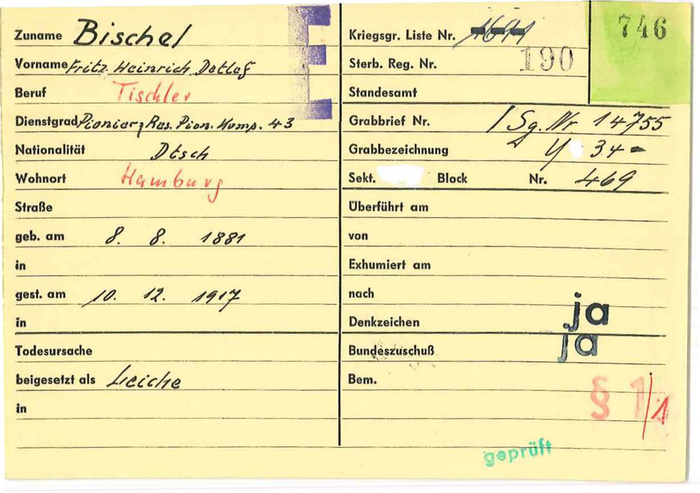 Zuname Bischel
Vorname Fritz Heinrich Detlef
Beruf Tischler
Dienstgrad Pionier, Res. Pion. Komp. 43
Nationalität Dtsch
Wohnort Hamburg
Straße
geb. am 8. 8. 1881
in
gest. am 10. 12. 1917
in
Todesursache
beigesetzt als Leiche
in
746
Kriegsgr. Liste Nr.
Sterb. Reg. Nr. 190
Standesamt
Grabbrief Nr. / Sg. Nr 14755
Grabbezeichnung 34
Sekt. Block Nr. 469
Überführt am
von
Exhumiert am
nach
Denkzeichen ja
Bundeszuschuß ja
Bem.
§ 1/1
geprüft